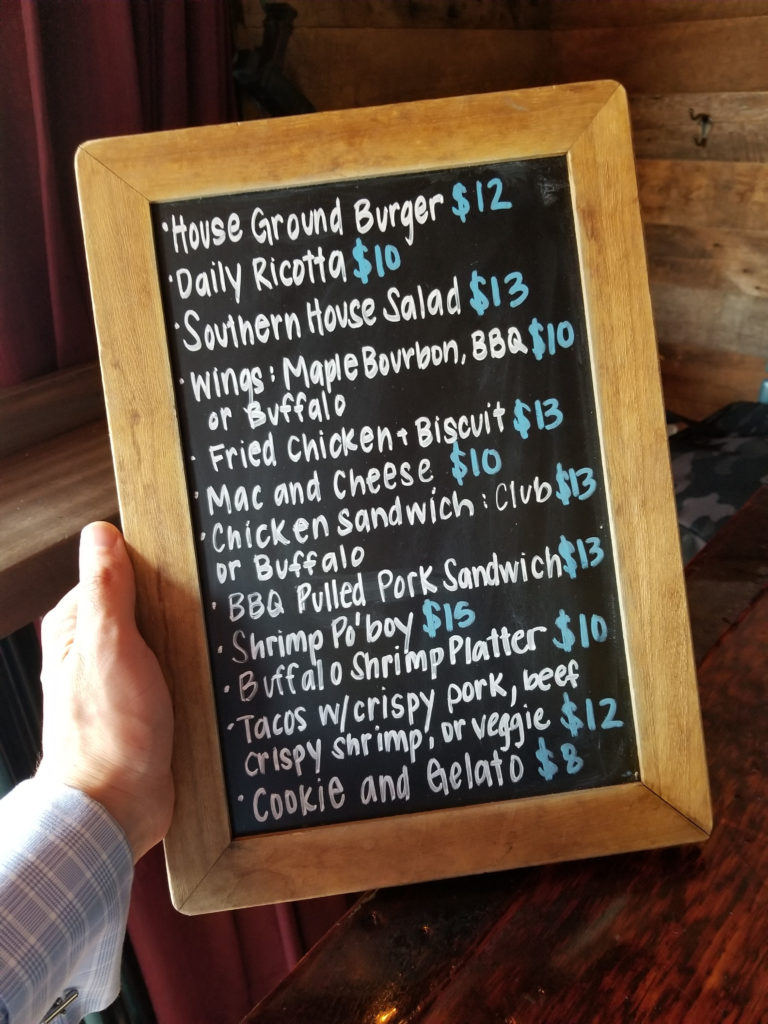 ·House Ground Burger $12
·Daily Ricotta $10
·Southern House Salad $13
·Wings: Maple Bourbon, BBQ $10
or Buffalo
·Fried Chicken + Biscuit $13
·Mac and Cheese $10
·Chicken Sandwich: Club $13
or Buffalo
·BBQ Pulled Pork Sandwich $13
·Shrimp Po'boy $15
·Buffalo Shrimp Platter $10
·Tacos w/crispy pork, beef
crispy shrimp, or veggie $12
·Cookie and Gelato $8